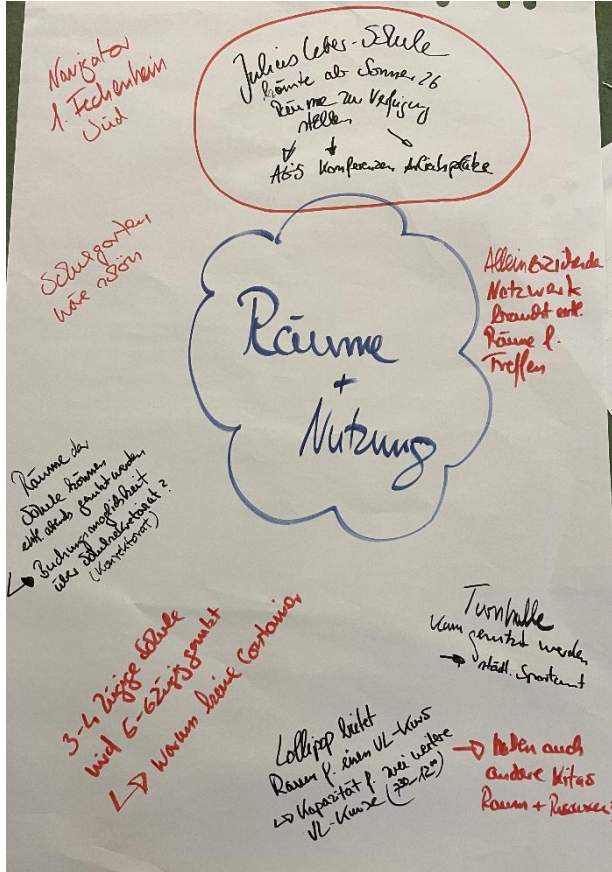 Navigator
1. Fechenheim
Süd
Julius Leber-Schule
könnte ab Sommer 26
Räume zur Verfügung
stellen
AG'S Konferenzen Arbeitsplätze
Schulgarten
wäre schön
Alleinerziehende
Netzwerk
braucht evtl.
Räume f.
Treffen
Räume
+
Nutzung
Räume der
Schule können
evtl. abends genutzt werden
↳ Buchungsmöglichkeit
über Schulsekretariat?
(Konrektorat)
Turnhalle
kann genutzt werden
→ städt. Sportamt
3-4 Zügige Schule
wird 5-6 Zügig genutzt
↳ warum keine Container
Lollipop bietet
Raum f. einen VL-Kurs
↳ Kapazität f. zwei weitere
VL-Kurse (7³⁰-12⁰⁰)
→ haben auch
andere Kitas
Raum + Ressourcen?